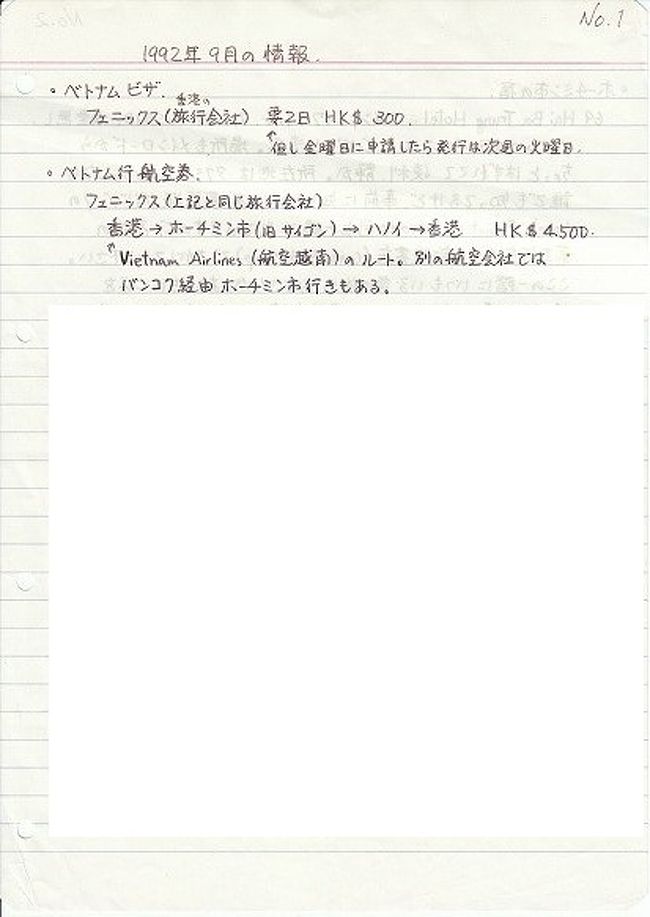 No.1
1992年9月の情報.
・ベトナム ビザ.
香港の
フェニックス(旅行会社) 要2日 HK$ 300.
↑但し金曜日に申請したら発行は次週の火曜日.
・ベトナム行航空券.
フェニックス(上記と同じ旅行会社)
香港→ホーチミン市(旧サイゴン)→ハノイ→香港 HK$ 4.500.
↑Vietnam Airlines (航空越南)のルート。別の航空会社では
バンコク経由 ホーチミン市行きもある.